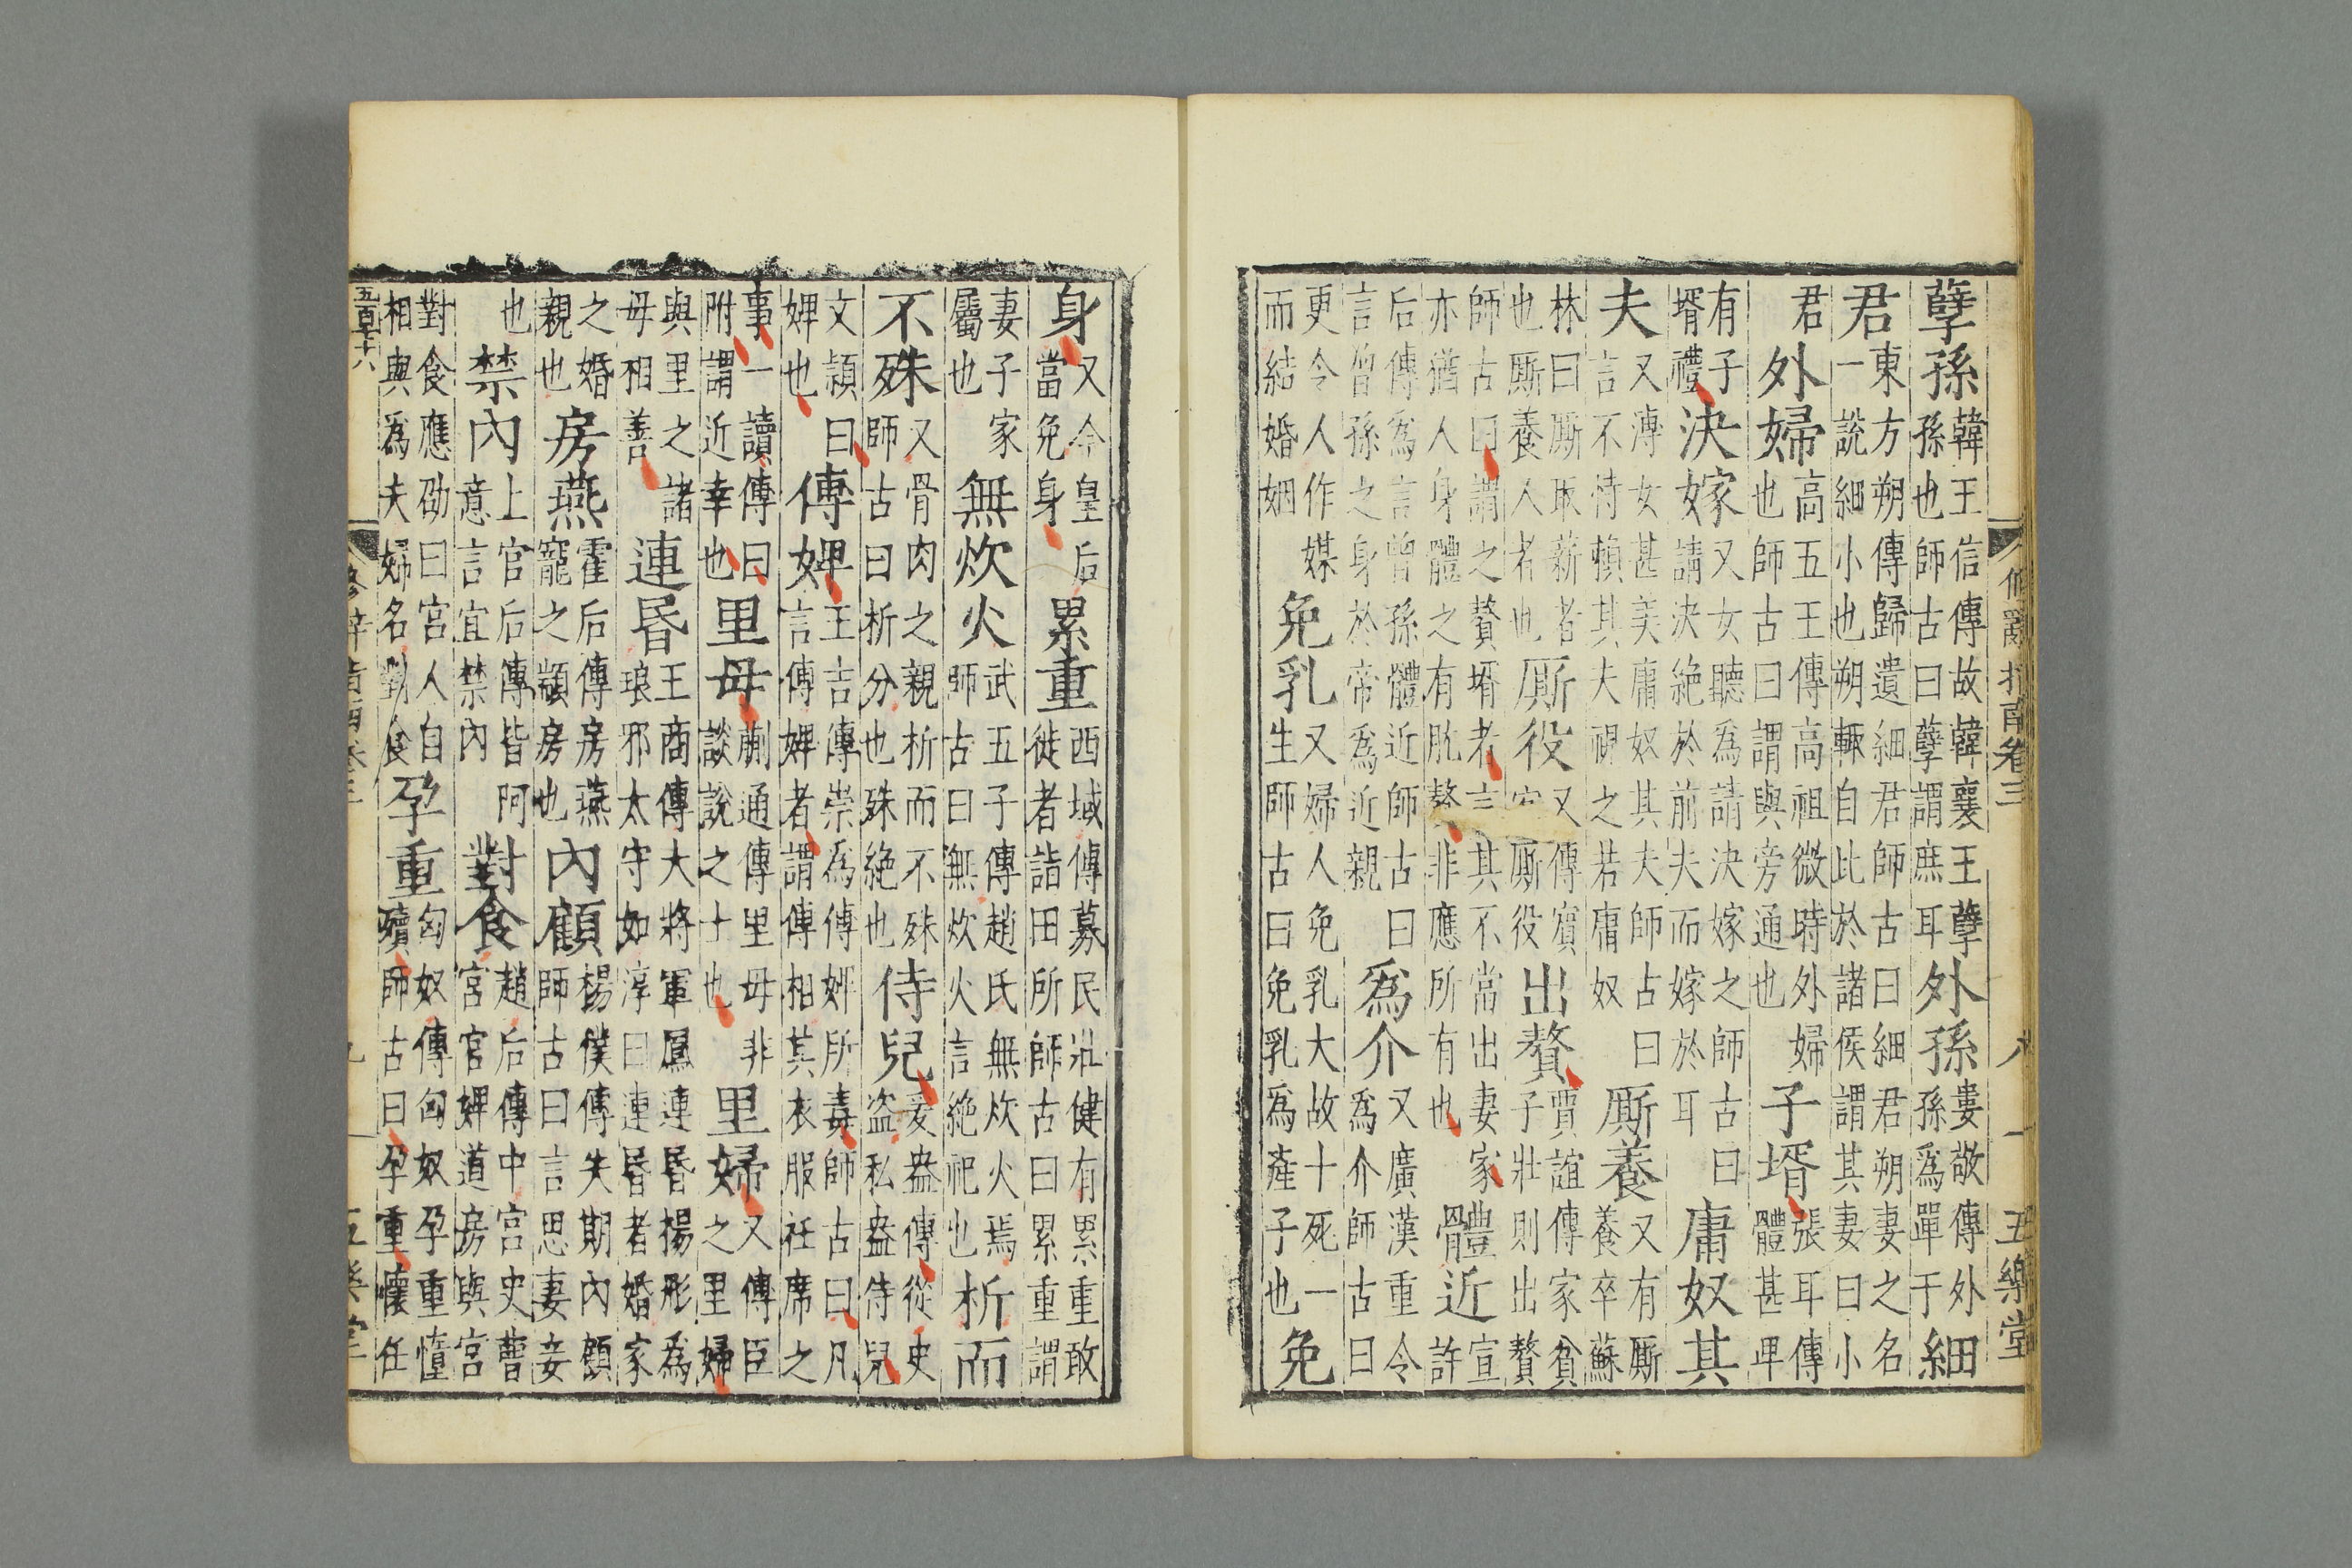 修辭指南卷三 八 五樂堂
孽孫韓王信傳故韓襄王孽孫也師古曰孽謂庶耳外孫婁敬傳外孫爲單于細
君東方朔傳歸遺細君師古曰細君朔妻之名一說細小也朔輒自比於諸侯謂其妻曰小
君外婦高五王傳高祖微時外婦也師古曰謂與旁通也子壻張耳傳體甚卑
有子壻禮決嫁又女聽爲請決嫁之師古曰請決絶於前夫而嫁於耳庸奴其
夫又傳女甚美庸奴其夫師古曰言不恃賴其夫視之若庸奴厮養又有厮養卒蘇
林曰厮取薪者也厮養人者也厮役又傳厮役出贅賈誼傳家貧子壯則出贅
師古曰謂之贅壻者言其不當出妻家亦猶人身體之有肬贅非應所有也體近許
后傳爲言曾孫體近師古曰言曾孫之身於帝爲近親爲介又廣漢重令爲介師古曰
更令人作媒而結婚姻免乳又婦人免乳大故十死一生師古曰免乳爲産子也免
身又令皇后當免身累重西域傳募民壯健有累重敢徙者詣田所師古曰累重謂
妻子家屬也無炊火武五子傳趙氏無炊火焉師古曰無炊火言絶祀也析而
不殊又骨肉之親析而不殊師古曰析分也殊絶也侍兒爰盎傳從史盗私盎侍兒
文穎曰婢也傅婢王吉傳崇爲傅婢所毒師古曰凡言傅婢者謂傅相其衣服衽席之
事一讀傅曰附謂近幸也里母蒯通傳里母非談說之士也里婦又傳臣之里婦
與里之諸母相善連昏王商傳大將軍鳳連昏楊肜爲琅邪太守如淳曰連昏者婚家
之婚親也房燕霍后傳房燕寵之顓房也內顧楊僕傳失期內顧師古曰言思妻妾
也禁內上官后傳皆阿意言宜禁內對食趙后傳中宮史曹宮官婢道房與宮
對食應劭曰宮人自相與爲夫婦名對食孕重匈奴傳匈奴孕重憧殰師古曰孕重懷任
五百早十八 修辭指南卷三 九 五樂堂